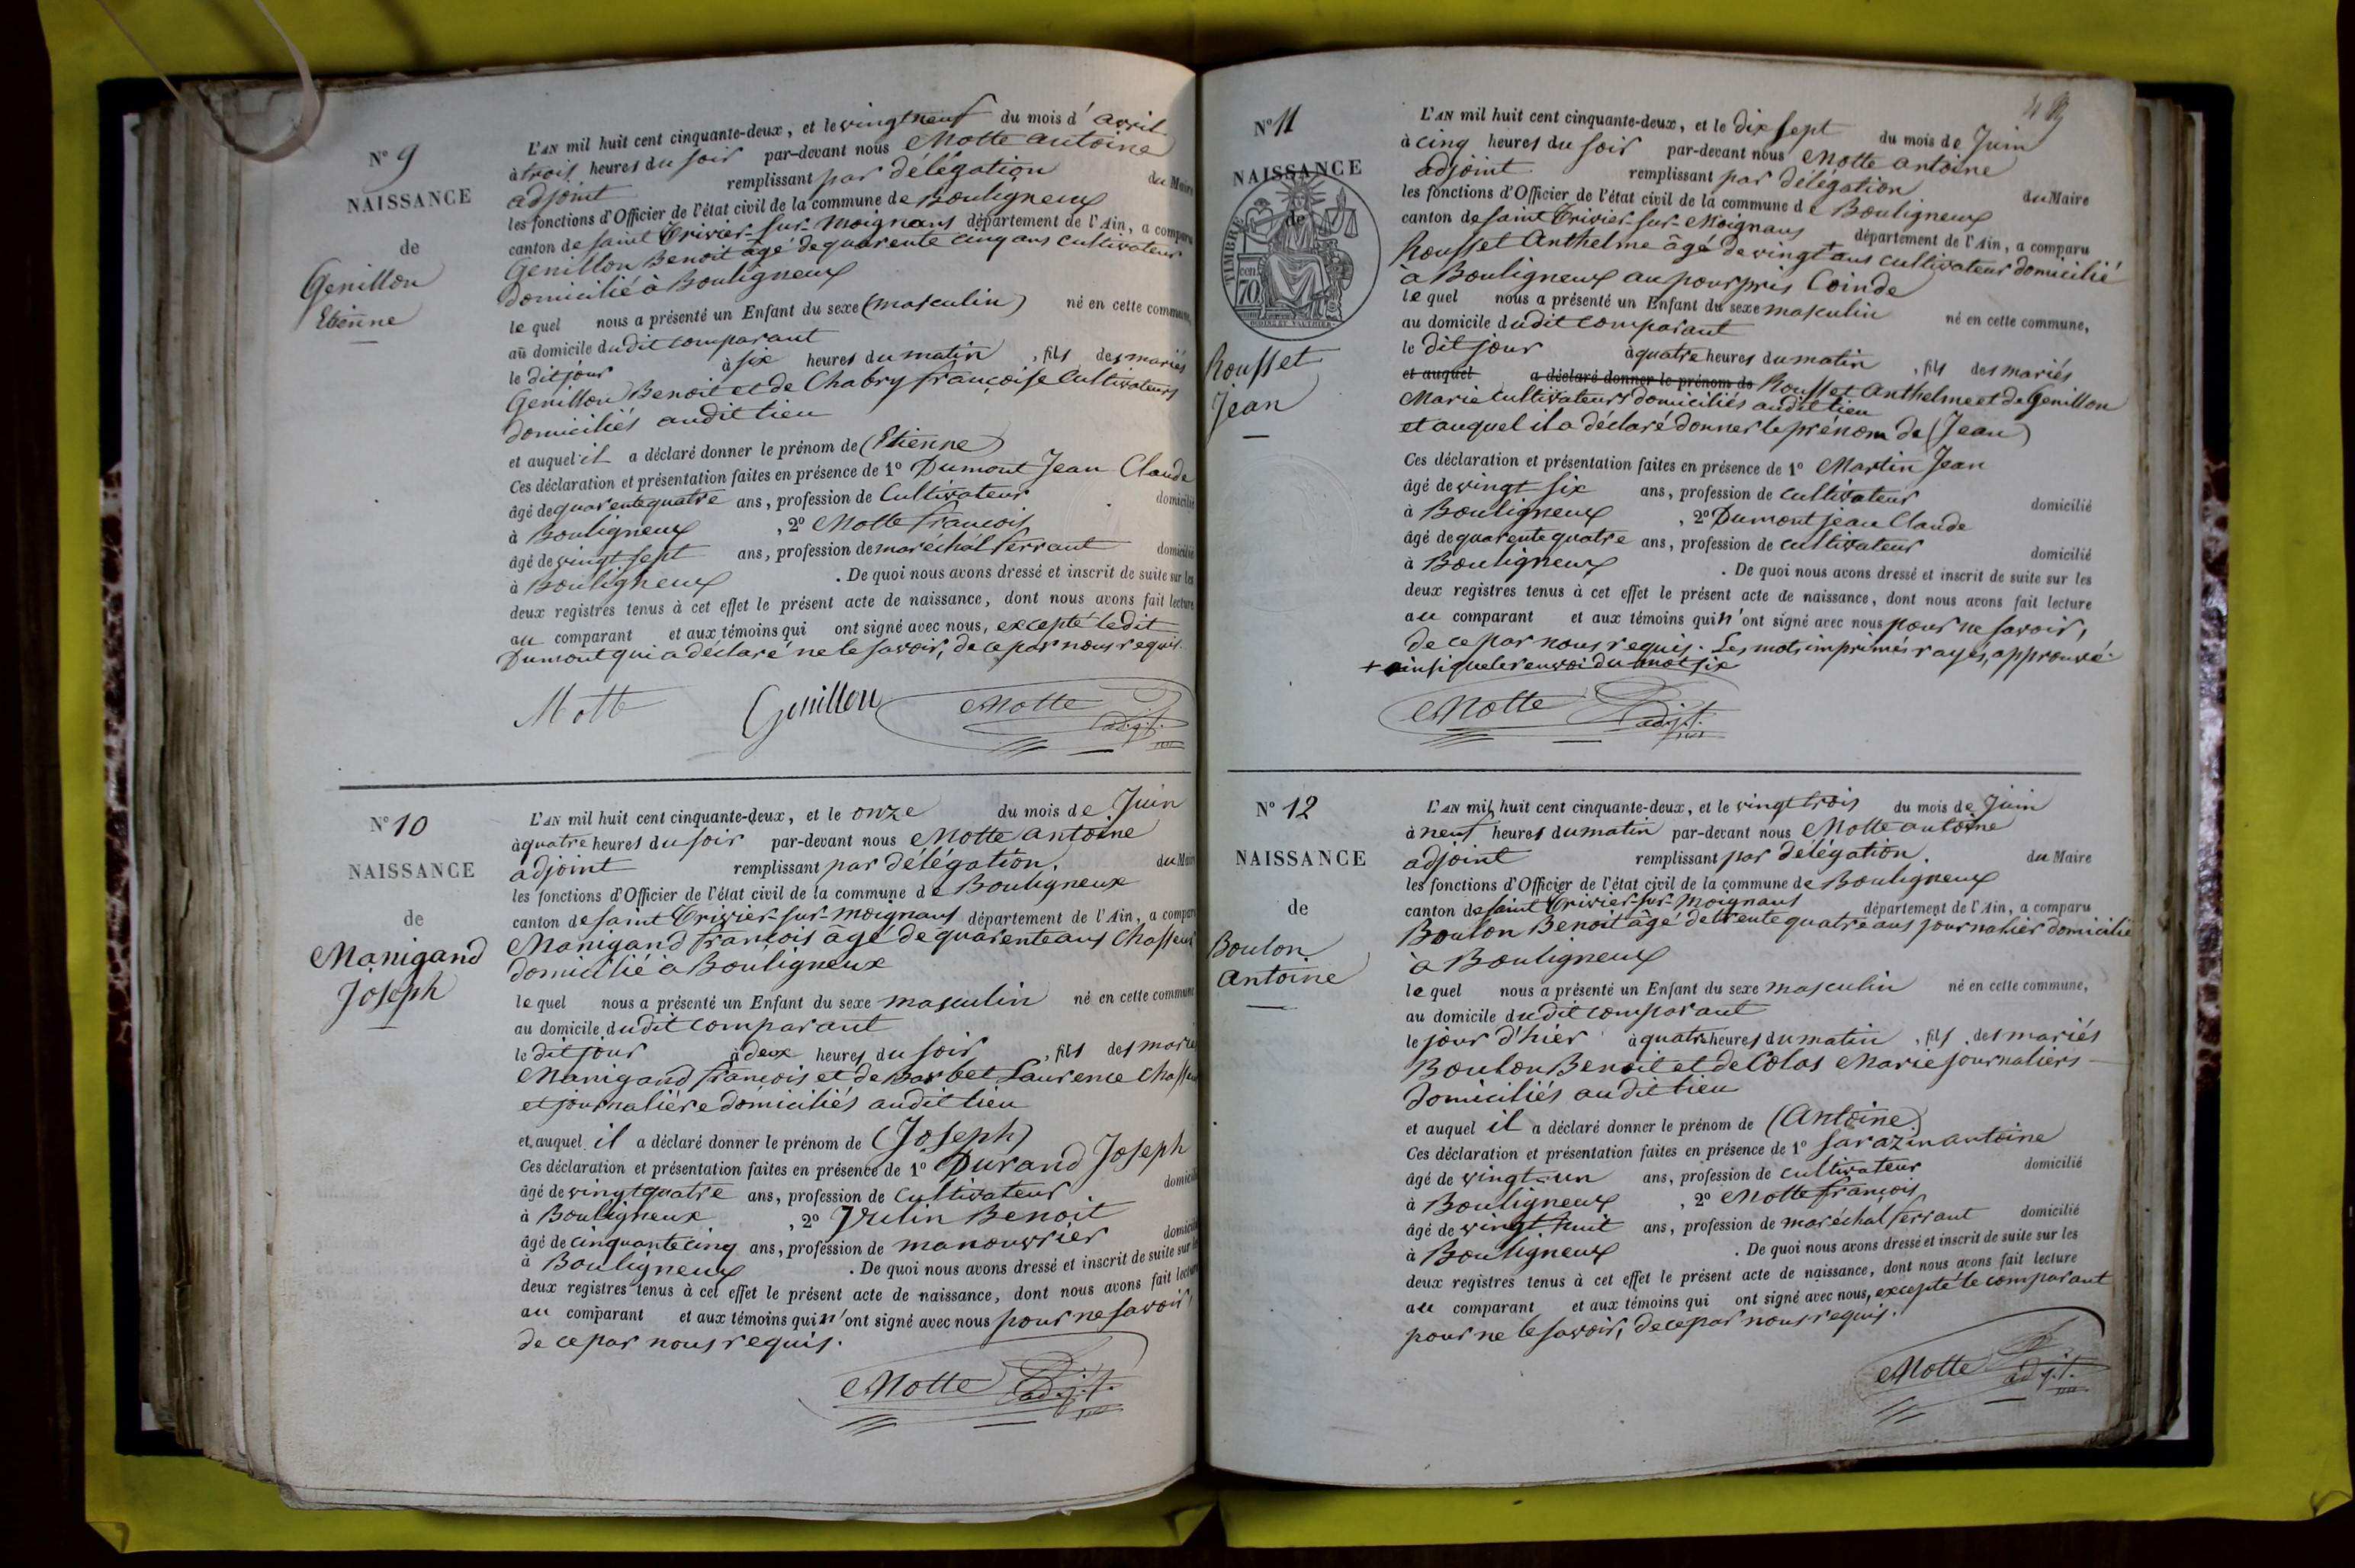 N° 9
NAISSANCE
de
Genillon
Etienne
L'AN mil huit cent cinquante-deux, et le vingt neuf du mois d'avril
à trois heures du soir par-devant nous Motte antoine
adjoint remplissant par délégation du Maire
les fonctions d'Officier de l'état civil de la commune de Bouligneux
canton de saint Trivier-sur-moignans département de l'Ain, a comparu
Genillon Benoit âgé de quarente cinq ans cultivateur
domicilié à Bouligneux
le quel nous a présenté un Enfant du sexe (masculin) né en cette commune,
au domicile dudit comparant
le dit jour à six heures du matin, fils des mariés
Genillon Benoit et de Chabry françoise Cultivateurs
domiciliés audit lieu
et auquel il a déclaré donner le prénom de (Etienne)
Ces déclaration et présentation faites en présence de 1° Dumont Jean Claude
âgé de quarente quatre ans, profession de Cultivateur domicilié
à Bouligneux, 2° Motte francois
âgé de vingt sept ans, profession de maréchal ferrant domicilié
à Bouligneux. De quoi nous avons dressé et inscrit de suite sur les
deux registres tenus à cet effet le présent acte de naissance, dont nous avons fait lecture
au comparant et aux témoins qui ont signé avec nous, excepté ledit
Dumont qui a déclaré ne le savoir, de ce par nous requis.
Motte Genillon Motte adjt.
N° 10
NAISSANCE
de
Manigand
Joseph
L'AN mil huit cent cinquante-deux, et le onze du mois de Juin
à quatre heures du soir par-devant nous Motte antoine
adjoint remplissant par délégation. du Maire
les fonctions d'Officier de l'état civil de la commune de Bouligneux
canton de saint Trivier-sur-moignans département de l'Ain, a comparu
Manigand françois âgé de quarente ans Chasseur
domicilié à Bouligneux
le quel nous a présenté un Enfant du sexe masculin né en cette commune
au domicile dudit comparant
le dit jour à deux heures du soir, fils des mariés
Manigand françois et de Barbet Laurence Chasseur
et journalière domiciliés audit lieu
et auquel il a déclaré donner le prénom de (Joseph)
Ces déclaration et présentation faites en présence de 1° Durand Joseph
âgé de vingt quatre ans, profession de Cultivateur domicilié
à Bouligneux, 2° Benoit
âgé de cinquante cinq ans, profession de manouvrier domicilié
à Bouligneux. De quoi nous avons dressé et inscrit de suite sur les
deux registres tenus à cet effet le présent acte de naissance, dont nous avons fait lecture
au comparant et aux témoins qui n'ont signé avec nous pour ne savoir,
de ce par nous requis.
Motte adjt.
N° 11
NAISSANCE
de
TIMBRE
70
Rousset
Jean
L'AN mil huit cent cinquante-deux, et le dix sept du mois de Juin
à cinq heures du soir par-devant nous Motte antoine
adjoint remplissant par délégation du Maire
les fonctions d'Officier de l'état civil de la commune de Bouligneux
canton de saint Trivier-sur-Moignans département de l'Ain, a comparu
Rousset Anthelme âgé de vingt + ans cultivateur domicilié
à Bouligneux au pourpris Coinde
le quel nous a présenté un Enfant du sexe masculin né en cette commune,
au domicile dudit comparant
le dit jour à quatre heures du matin, fils des mariés
et auquel a déclaré donner le prénom de Rousset Anthelme et de Genillon
Marie Cultivateurs domiciliés audit lieu
et auquel il a déclaré donner le prénom de (Jean)
Ces déclaration et présentation faites en présence de 1° Martin Jean
âgé de vingt six ans, profession de cultivateur domicilié
à Bouligneux, 2° Dumont jean Claude
âgé de quarente quatre ans, profession de cultivateur domicilié
à Bouligneux. De quoi nous avons dressé et inscrit de suite sur les
deux registres tenus à cet effet le présent acte de naissance, dont nous avons fait lecture
au comparant et aux témoins qui n'ont signé avec nous pour ne savoir,
de ce par nous requis. Les mots imprimés rayés, approuvé
+ ainsi que le renvoi du mot six
Motte adjt.
N° 12
NAISSANCE
de
Boulon
Antoine
L'AN mil huit cent cinquante-deux, et le vingt trois du mois de Juin
à neuf heures du matin par-devant nous Motte antoine
adjoint remplissant par délégation. du Maire
les fonctions d'Officier de l'état civil de la commune de Bouligneux
canton de saint Trivier-sur-Moignans département de l'Ain, a comparu
Boulon Benoit âgé de trente quatre ans journalier domicilié
à Bouligneux
le quel nous a présenté un Enfant du sexe masculin né en cette commune,
au domicile dudit comparant
le jour d'hier à quatre heures du matin, fils des mariés
Boulon Benoit et de Colas Marie journaliers
domiciliés audit lieu
et auquel il a déclaré donner le prénom de (Antoine)
Ces déclaration et présentation faites en présence de 1° Sarazin antoine
âgé de vingt-un ans, profession de cultivateur domicilié
à Bouligneux, 2° Motte françois
âgé de vingt huit ans, profession de maréchal ferrant domicilié
à Bouligneux. De quoi nous avons dressé et inscrit de suite sur les
deux registres tenus à cet effet le présent acte de naissance, dont nous avons fait lecture
au comparant et aux témoins qui ont signé avec nous, excepté le comparant
pour ne le savoir, de ce par nous requis.
Motte adjt.